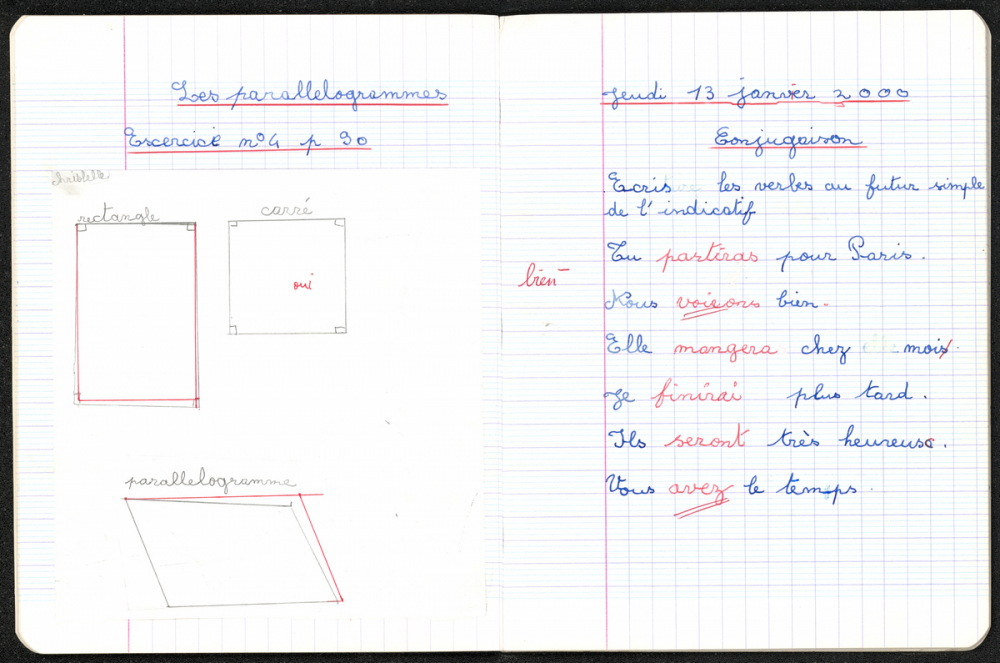 Les parallelogrammes
Excercice n°4 p 90
rectangle
carré
oui
parallelogramme
Jeudi 13 janvier 2000
Conjugaison
Ecris les verbes au futur simple
de l'indicatif
Tu partiras pour Paris.
bien
Nous voisons bien.
Elle mangera chez mois.
Je finirai plus tard.
Ils seront très heureux.
Vous avez le temps.